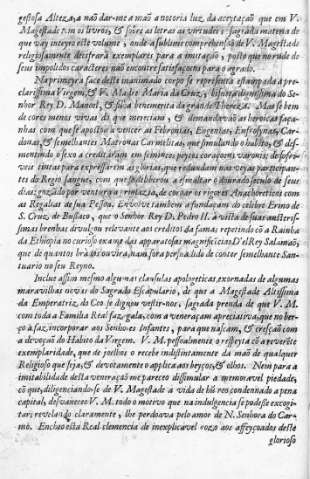 gestosa Alteza, a não dar-me a mão a notoria luz da aceytação que em V.
Magestade tem os livros, & sobre as letras as virtudes; sagrada materia de
que vay inteyro este volume, onde a sublime comprehensão de V. Magestade
religiosamente desfrará exemplares para a imitação, posto que no rude de
seus impolidos caracteres não encontre satisfaçoens para o agrado.
Na primeyra face deste inanimado corpo se representa estampada a pre-
clarissima Virgem, & V. Madre Maria da Cruz, filha dignissima do Se-
nhor Rey D. Manoel, & filha benemerita da grande Thereza. Mas se bem
de cores menos vivas do que mereciam, & demandavão as heroicas faça-
nhas com que se apostou a vencer as Pebronias, Eugenias, Eufrosynas, Car-
donas, & semelhantes Matronas Carmelitas, que simulando o habito, & des-
mentindo o sexo acreditàram em femininos peytos coraçoens varonis: de sobra
vem tintas para expressarlhes as glorias, que redundam nas veyas participan-
tes do Regio sangue, com que se deliberou a esmaltar o dourado
por ventura de copiar os rigores Anachoreticos com
as Regalias de sua Pessoa. Envolve tambem a fundação do celebre Ermo de
S. Cruz, de Bussaco, que o Senhor Rey D. Pedro II. à vista de suas austeris-
simas brenhas divulgou relevante aos creditos da fama: repetindo cõ a Rainha
da Ethiopia no curioso exame das apparatosas magnificencias D'elRey Salamão;
que de quantos brados ouvira, nam fora persuadido de conter semelhante San-
tuario no seu Reyno.
Inclue assim mesmo algumas clausulas apologeticas exornadas de algumas
maravilhas novas do Sagrado Escapulario, de que a Magestade Altissima
da Emperatriz do Ceo se dignou vestir-nos, sagrada prenda de que V. M.
com toda a Familia Real faz gala, com a veneraçam apreciativa, que no ber-
ço a faz incorporar aos Senhores Infantes, para que nasçam, & cresçam com
a devoção do Habito da Virgem. V. M. pessoalmente o respeyta cõ a reverente
exemplaridade, que de joelhos o recebe indistintamente da mão de qualquer
Religioso que seja, & devotamente o applica aos beyços, & olhos. Nem para a
imitabilidade desta veneração me pareceo dissimular a memoravel piedade,
cõ que, diligenciando se de V. Magestade a vida de hũ reo condennado a pena
capital, desvaneceo V. M. todo o motivo que na indulgencia se podesse excogi-
tar; revelando claramente, lhe perdoava pelo amor de N. Senhora do Car-
mo. Encha esta Real clemencia de inexplicavel gozo aos affeyçoados deste
glorioso